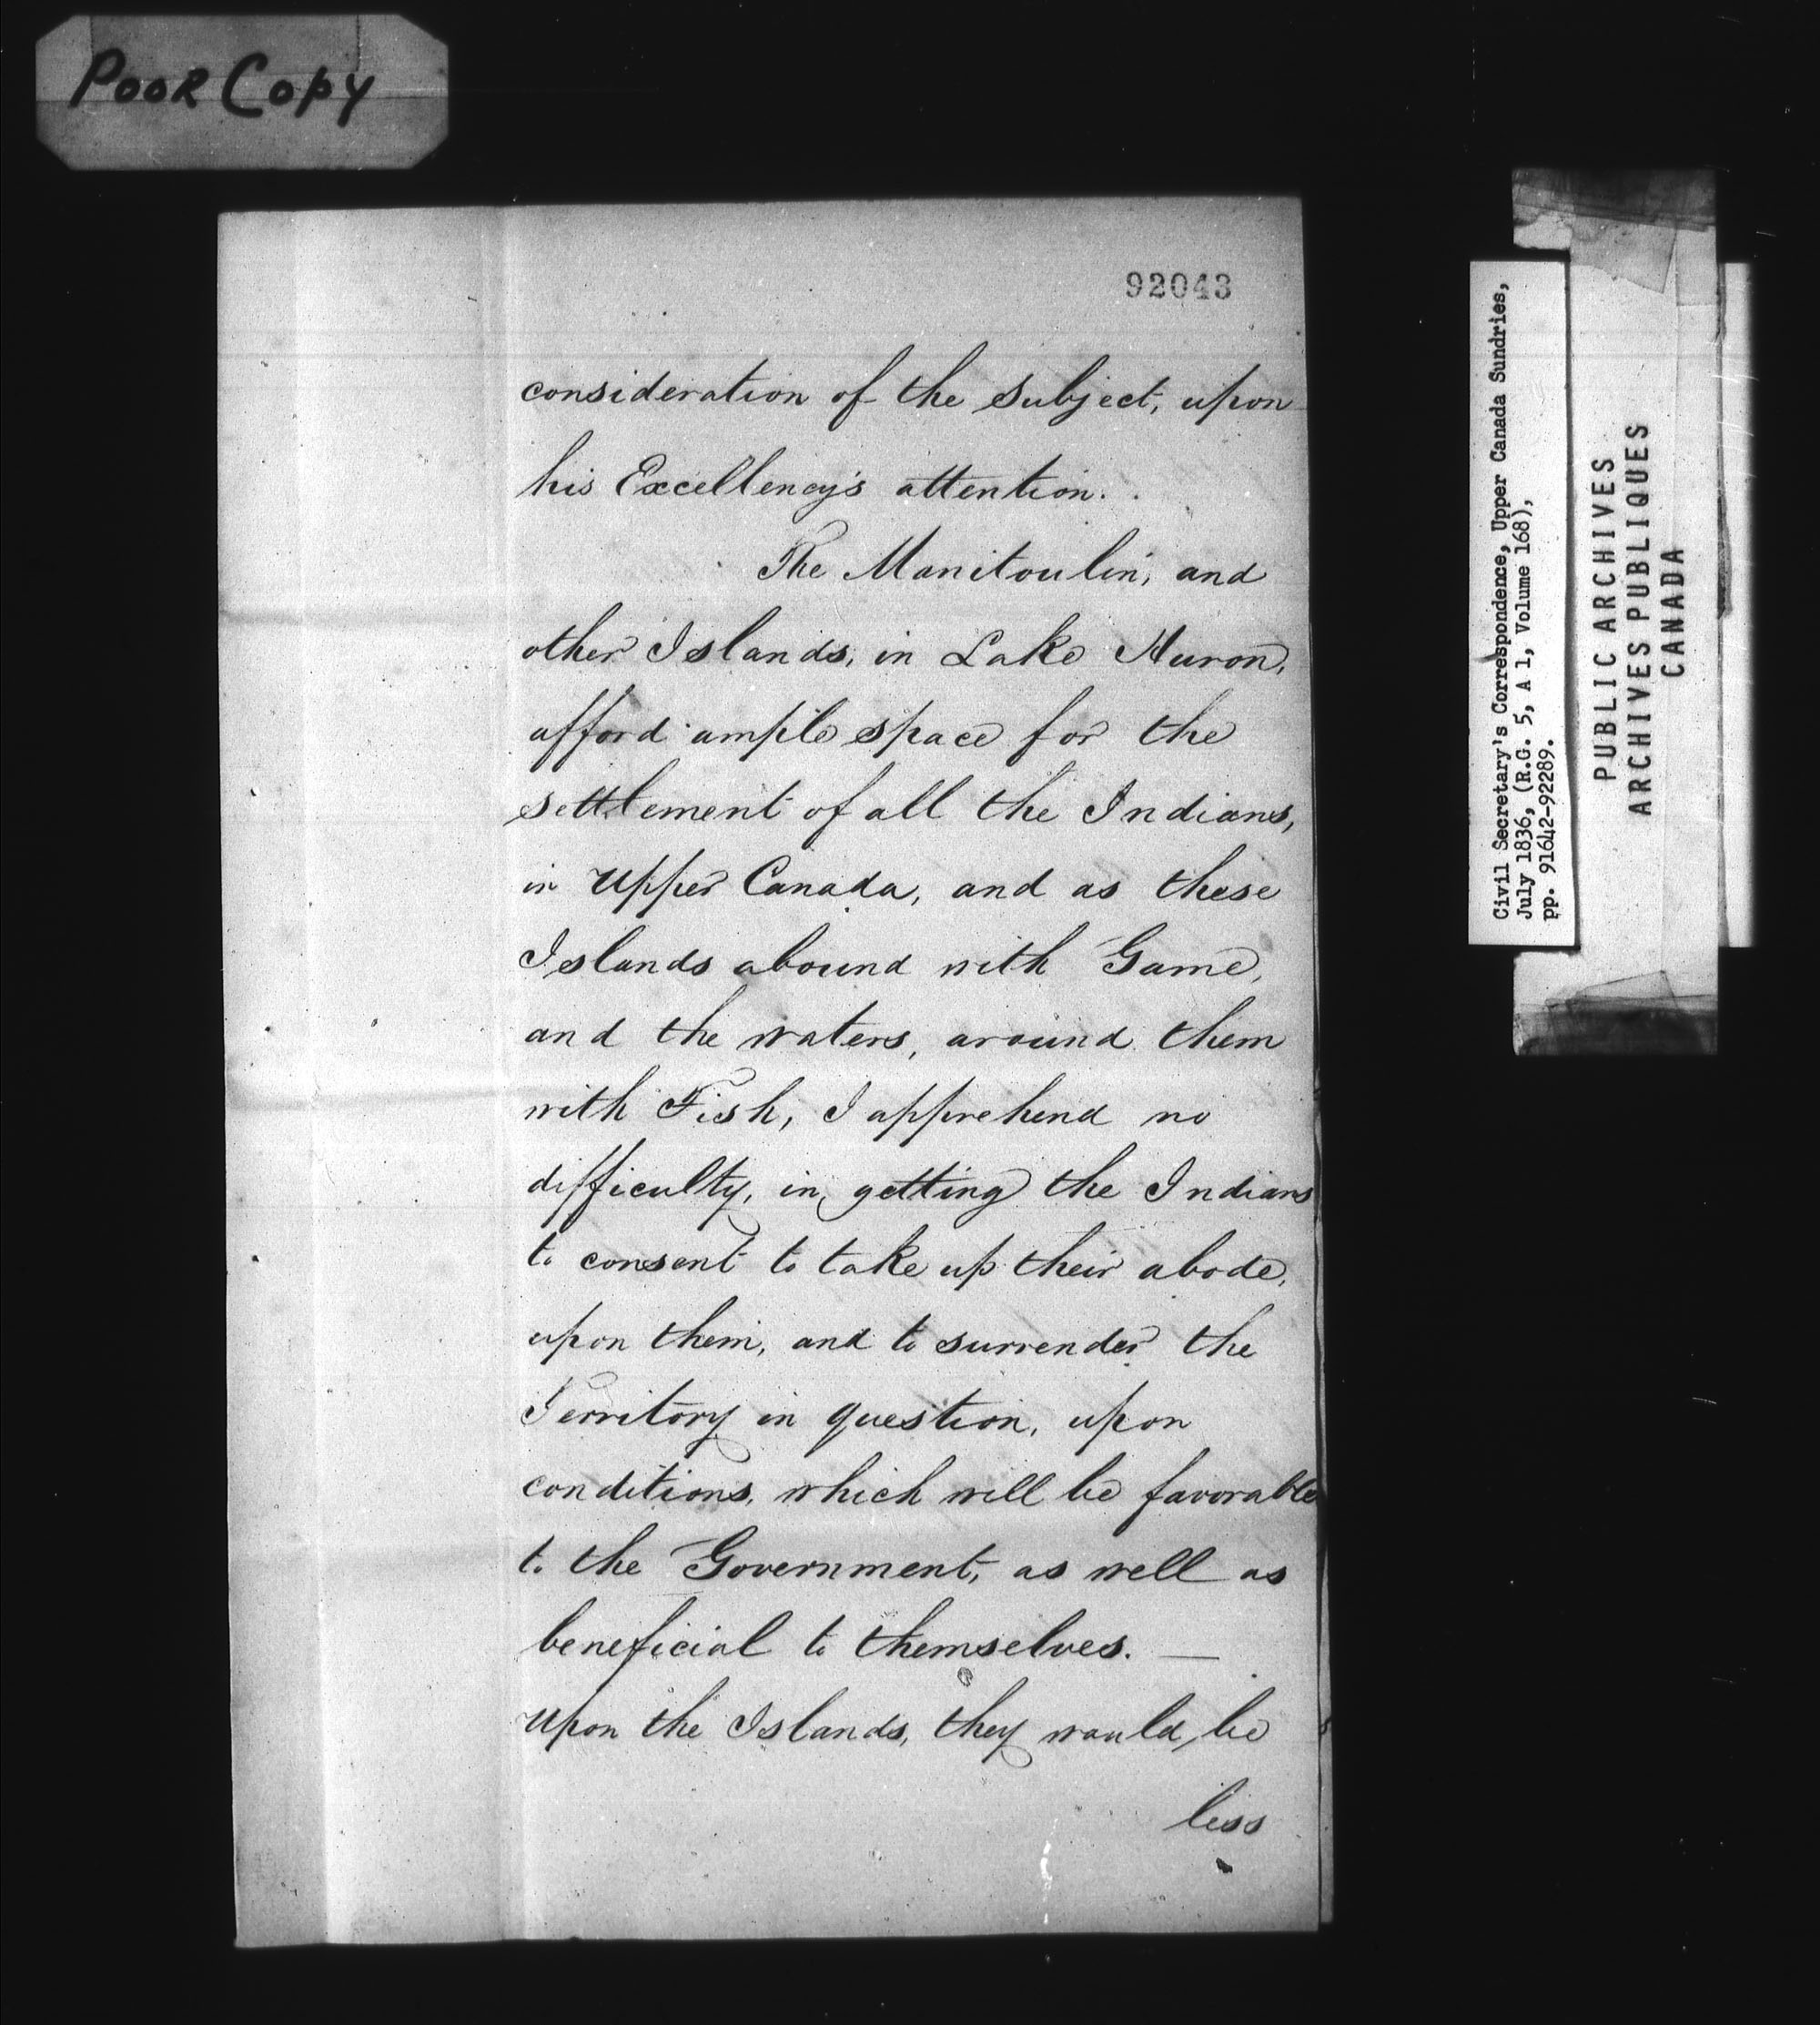 Poor Copy
92043
consideration of the subject, upon
his Excellency's attention.
The Manitoulin, and
other Islands, in Lake Huron,
afford ample space for the
settlement of all the Indians,
in Upper Canada, and as these
Islands abound with Game,
and the waters, around them
with Fish, I apprehend no
difficulty, in getting the Indians
to consent to take up their abode,
upon them, and to surrender the
Territory in question, upon
conditions, which will be favorable
to the Government, as well as
beneficial to themselves. —
Upon the Islands, they would, be
less
Civil Secretary's Correspondence, Upper Canada Sundries,
July 1836, (R.G. 5, A 1, Volume 168),
pp. 91642-92289.
PUBLIC ARCHIVES
ARCHIVES PUBLIQUES
CANADA